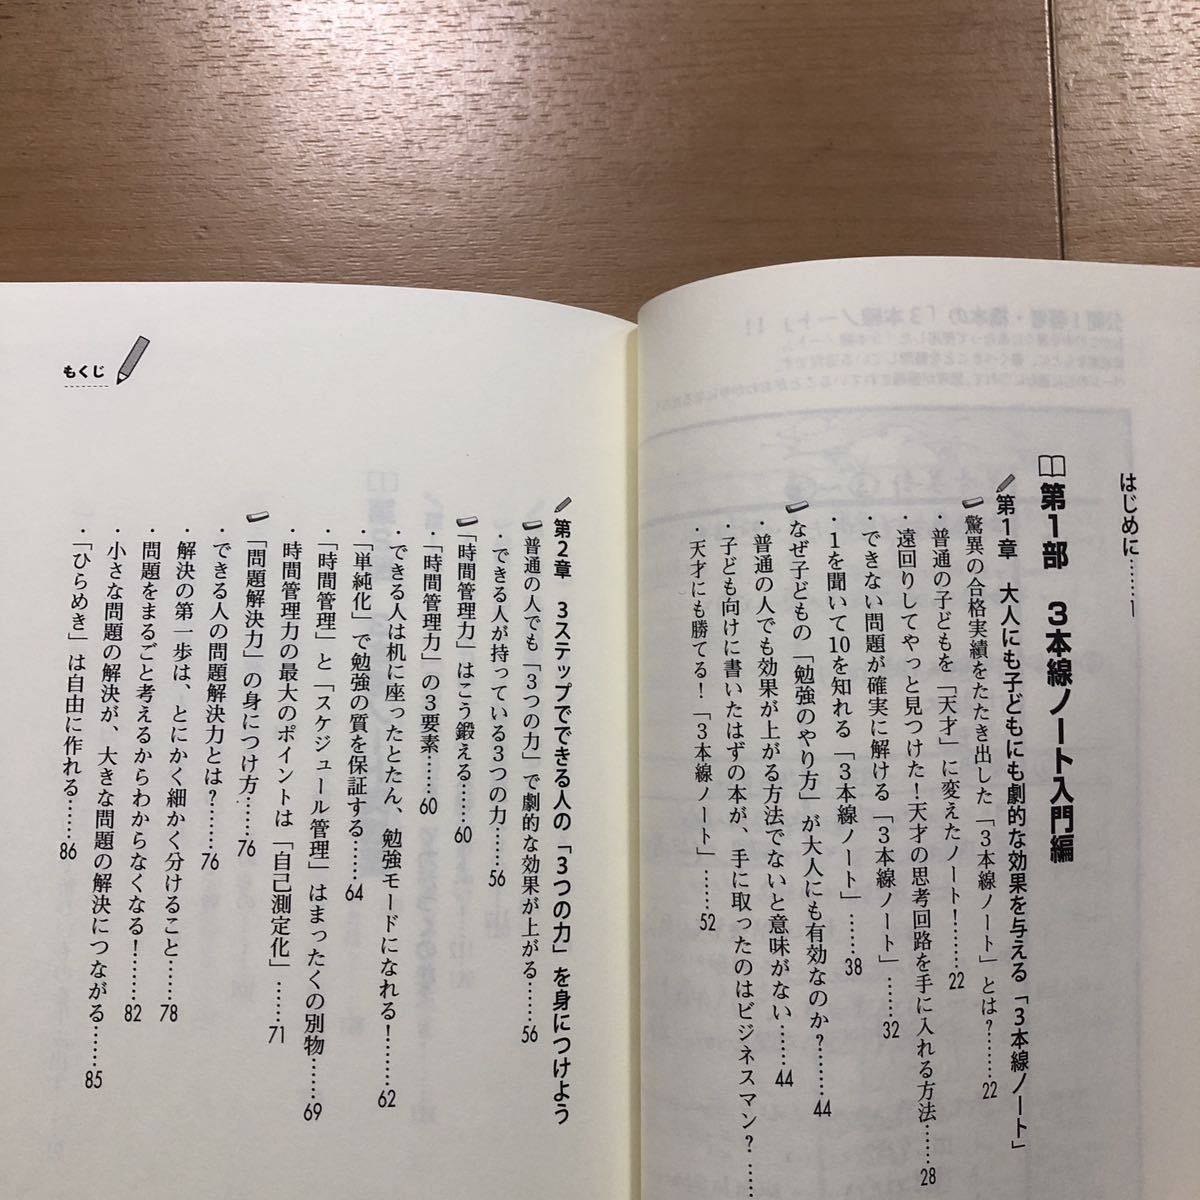 はじめに……1
第1部 3本線ノート入門編
第1章 大人にも子どもにも劇的な効果を与える「3本線ノート」
驚異の合格実績をたたき出した「3本線ノート」とは?……22
・普通の子どもを「天才」に変えたノート!……22
・遠回りしてやっと見つけた!天才の思考回路を手に入れる方法……28
・できない問題が確実に解ける「3本線ノート」……32
・1を聞いて10を知れる「3本線ノート」……38
なぜ子どもの「勉強のやり方」が大人にも有効なのか?……44
・普通の人でも効果が上がる方法でないと意味がない……44
・子ども向けに書いたはずの本が、手に取ったのはビジネスマン?……
・天才にも勝てる!「3本線ノート」……52
もくじ
第2章 3ステップでできる人の「3つの力」を身につけよう
普通の人でも「3つの力」で劇的な効果が上がる……56
・できる人が持っている3つの力……56
「時間管理力」はこう鍛える……60
・「時間管理力」の3要素……60
・できる人は机に座ったとたん、勉強モードになれる!……62
・「単純化」で勉強の質を保証する……64
・「時間管理」と「スケジュール管理」はまったくの別物……69
・時間管理力の最大のポイントは「自己測定化」……71
「問題解決力」の身につけ方……76
・できる人の問題解決力とは?……76
・解決の第一歩は、とにかく細かく分けること……78
・問題をまるごと考えるからわからなくなる!……82
・小さな問題の解決が、大きな問題の解決につながる……85
・「ひらめき」は自由に作れる……86